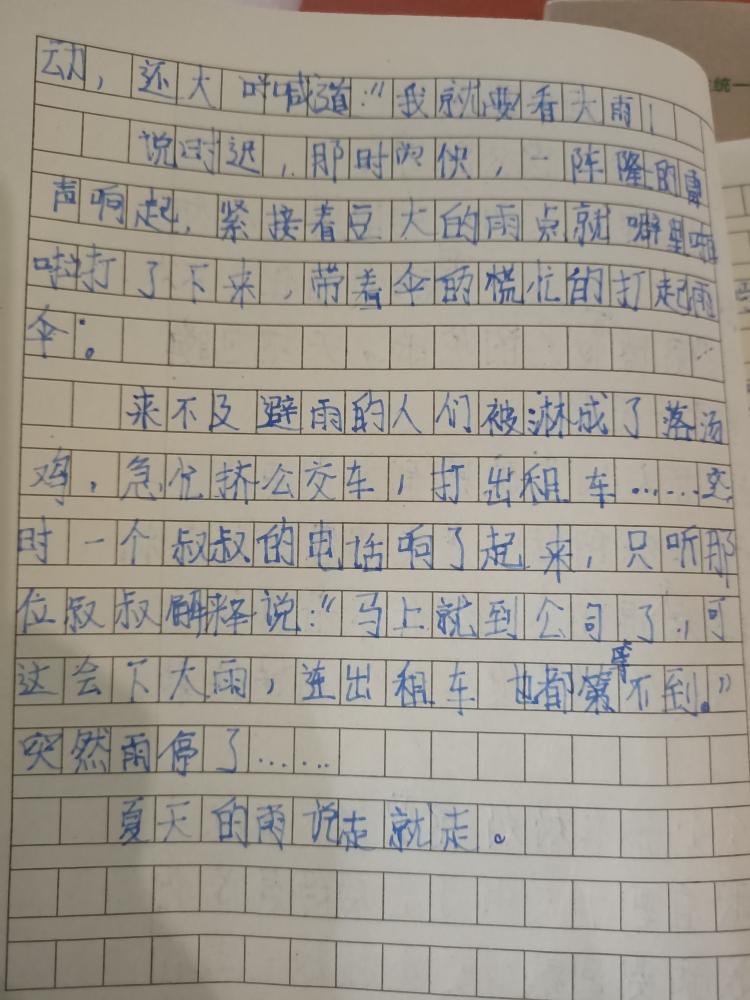 动，还大叫喊道：“我就要看大雨！
说时迟，那时候快，一阵隆的雷
声响起，紧接着豆大的雨点就噼里啪
啦打了下来，带着伞的慌忙的打起雨
伞；
来不及避雨的人们被淋成了落汤
鸡，急忙挤公交车，打出租车……这
时一个叔叔的电话响了起来，只听那
位叔叔解释说：“马上就到公司了，可
这会下大雨，连出租车也都等不到。”
突然雨停了……
夏天的雨说走就走。
统一